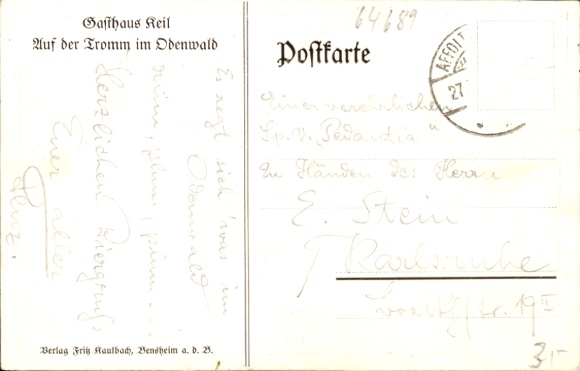 Gasthaus Keil
Auf der Tromm im Odenwald
Es regt sich was im
Odenwald
plum, plum
Herzlichen Biergruß
Euer alter
Verlag Fritz Kaulbach, Bensheim a. d. B.
64689
Postkarte
AFFOLT
27
Einer verehrlichen
Sp. V. "Pedantia"
zu Händen des Herrn
E. Stein
Karlsruhe
19 II
3,-